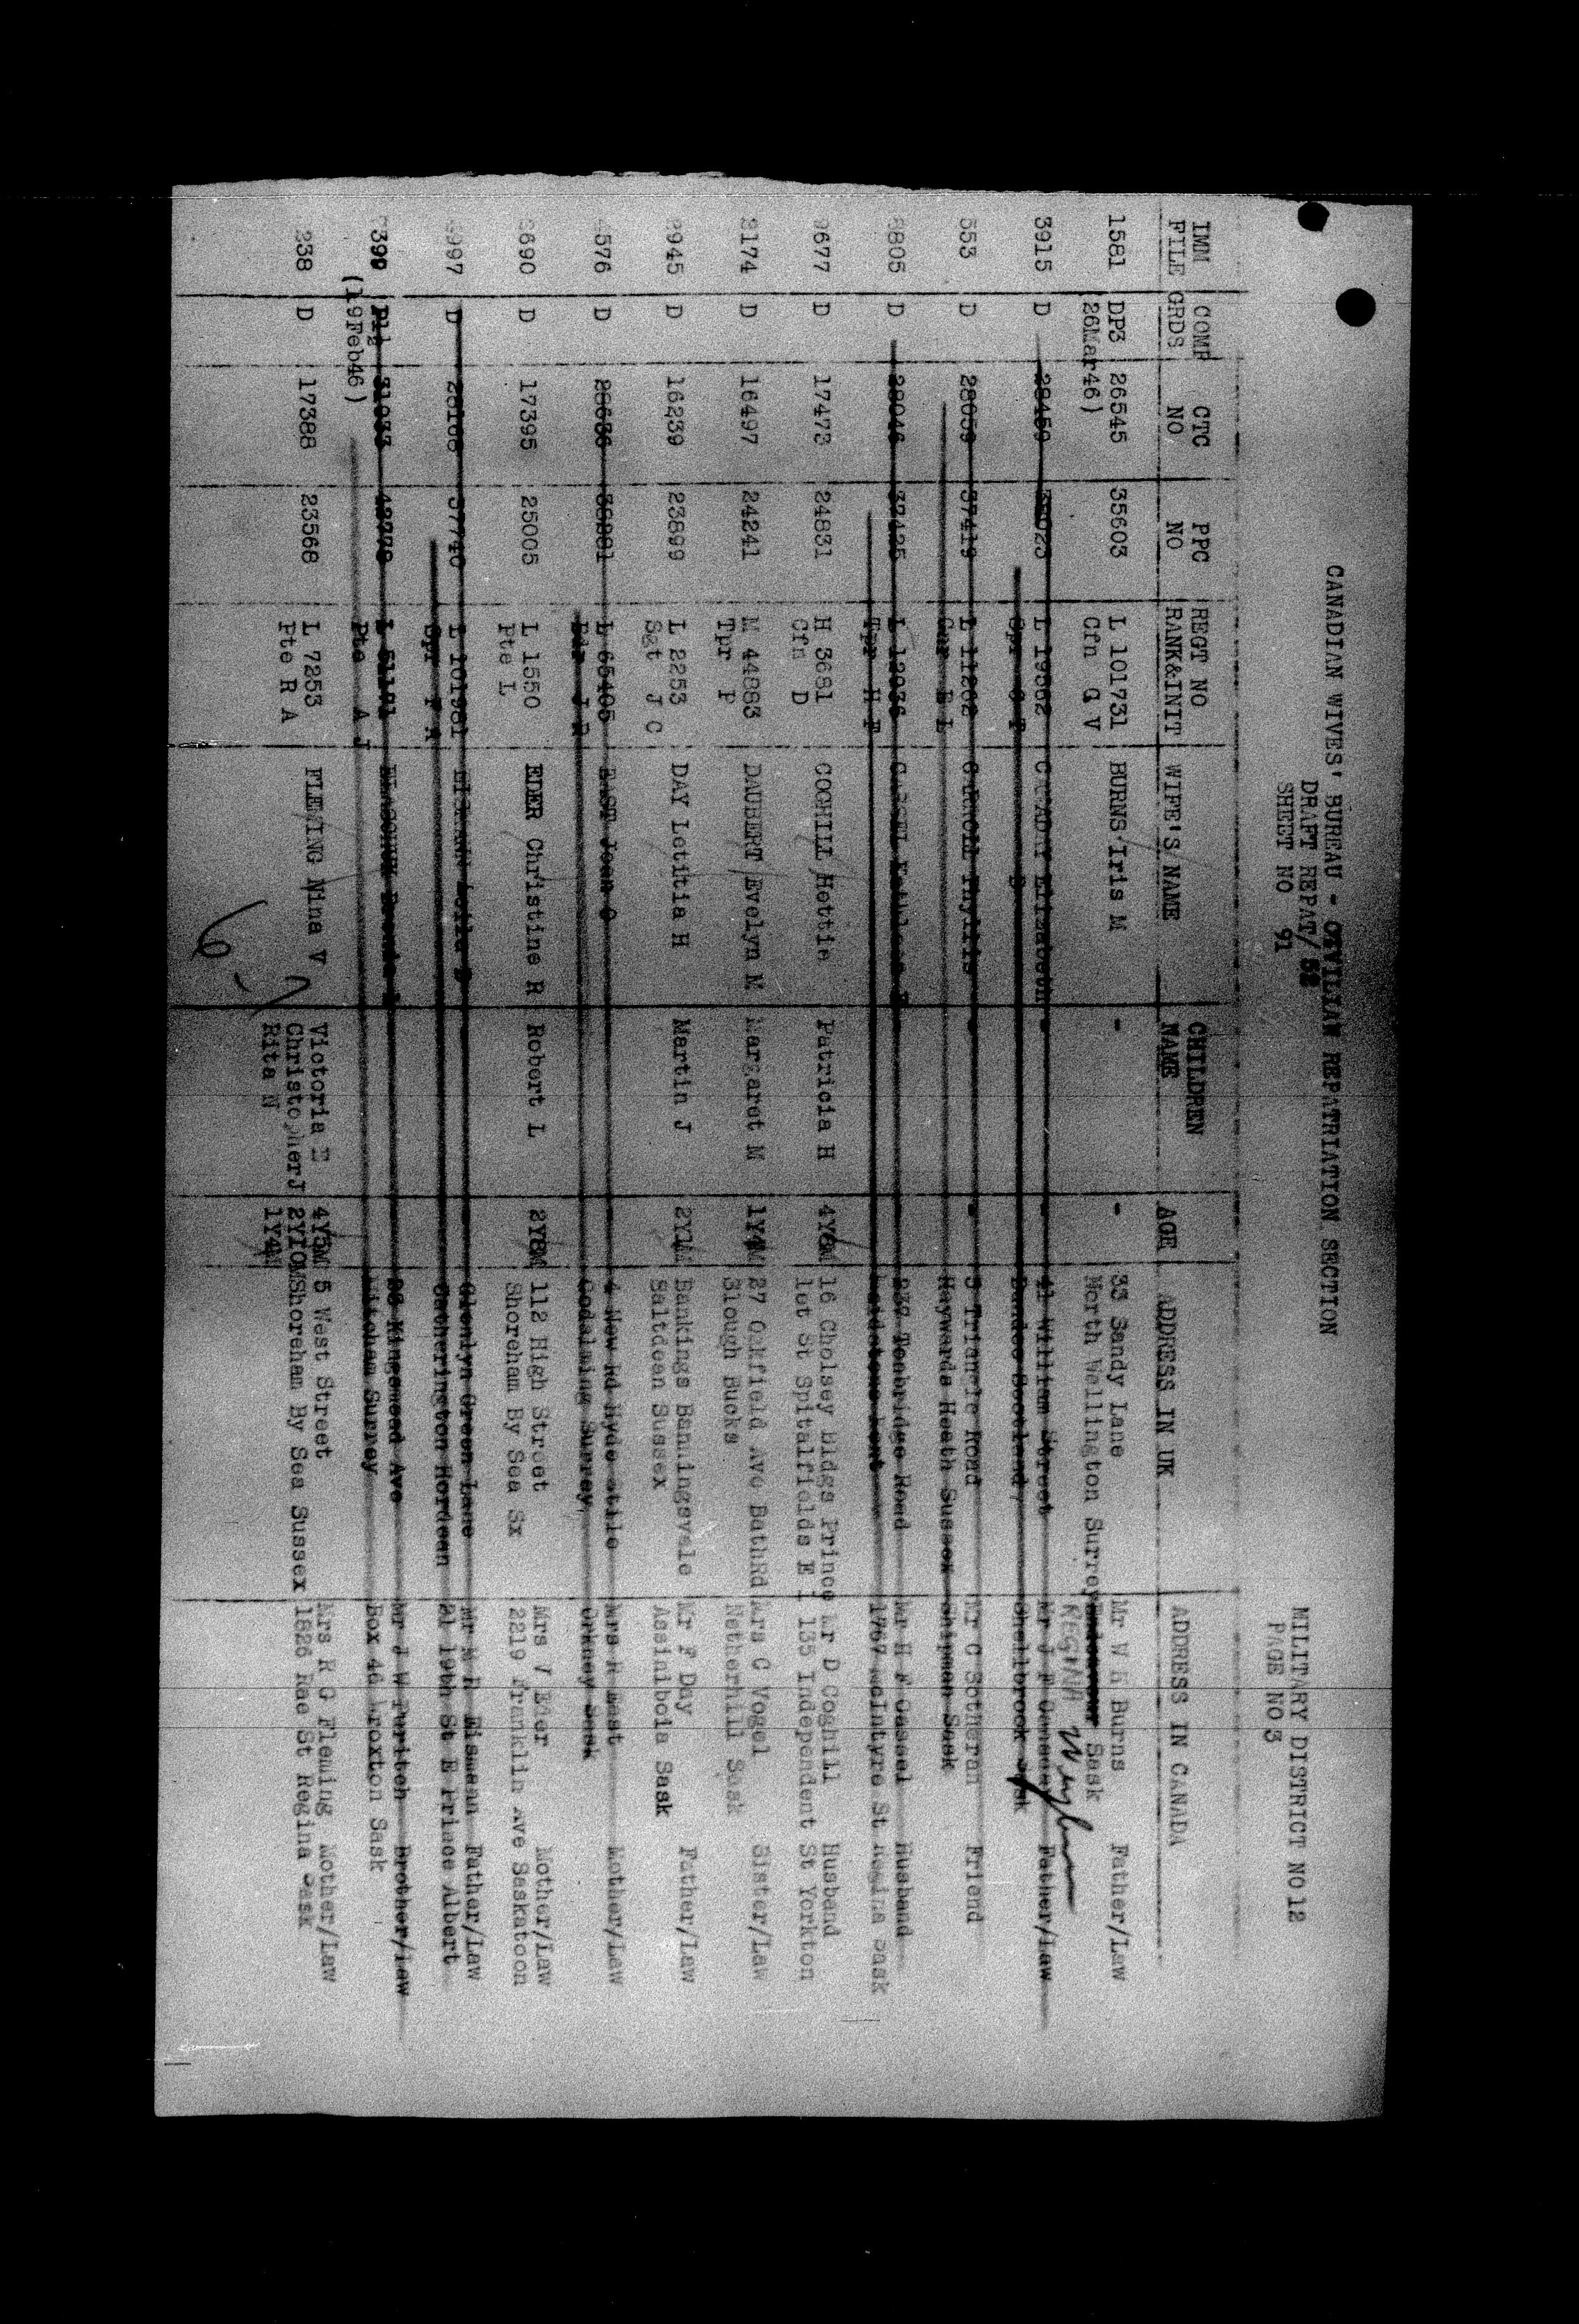 CANADIAN WIVES' BUREAU - CIVILIAN REPATRIATION SECTION
DRAFT REPAT/ 52
SHEET NO 91
MILITARY DISTRICT NO 12
PAGE NO 3
IMM FILE COMP GRDS CTC NO PPC NO REGT NO RANK&INIT WIFE'S NAME CHILDREN NAME AGE ADDRESS IN UK ADDRESS IN CANADA
1581 DP3 26545 35603 L 101731 BURNS Iris M - - 33 Sandy Lane Mr W R Burns Father/Law
26Mar46) Cfn G V North Wallington Surrey Sask
REGINA Weyburn
3915 D 28459 L 19362 Elizabeth - - 41 William Street Mr J F Father/Law
Spr Dundee Scotland Shellbrook Sask
553 D 28059 37419 L 11262 CARROLL Phyllis - - 3 Triangle Road Mr C Sotheran Friend
Gnr E L Haywards Heath Sussex Shipman Sask
805 D 28046 37425 L 12936 CASSEL Kathleen - - 232 Tonbridge Road Mr H F Cassel Husband
Tpr H F Maidstone Kent 1767 McIntyre St Regina Sask
9677 D 17473 24831 H 3681 COGHILL Hettie Patricia H 4Y8M 16 Cholsey Bldgs Prince Mr D Coghill Husband
Cfn D let St Spitalfields E 1 135 Independent St Yorkton
2174 D 16497 24241 M 44883 DAUBERT Evelyn M Margaret M 1Y4M 27 Oakfield Ave BathRd Mrs C Vogel Sister/Law
Tpr P Slough Bucks Netherhill Sask
945 D 16239 23899 L 2253 DAY Letitia H Martin J 2Y1M Bankings Banningsvale Mr F Day Father/Law
Sgt J C Saltdean Sussex Assiniboia Sask
576 D 28636 38881 L 65405 EAST Joan C - - 4 New Rd Hyde stile Mrs R East Mother/Law
Bdr J R Godalming Surrey Orkney Sask
690 D 17395 25005 L 1550 EDER Christine R Robert L 2Y8M 112 High Street Mrs V Eder Mother/Law
Pte L Shoreham By Sea Sx 2219 Franklin Ave Saskatoon
997 D 28168 37740 L 101981 - - Glenlyn Green Lane Mr M R Eismann Father/Law
Spr Catherington Hordean 21 19th St E Prince Albert
399 Plg 31033 42778 L 51191 - - 23 Kingsmead Ave Mr J W Puritch Brother/Law
(19Feb46) Pte A J Mitcham Surrey Box 46 Broxton Sask
238 D 17388 23568 L 7253 FLEMING Nina V Victoria E 4Y5M 5 West Street Mrs R G Fleming Mother/Law
Pte R A Christopher J 2Y10M Shoreham By Sea Sussex 1826 Rae St Regina Sask
Rita N 1Y4M
6 - 7